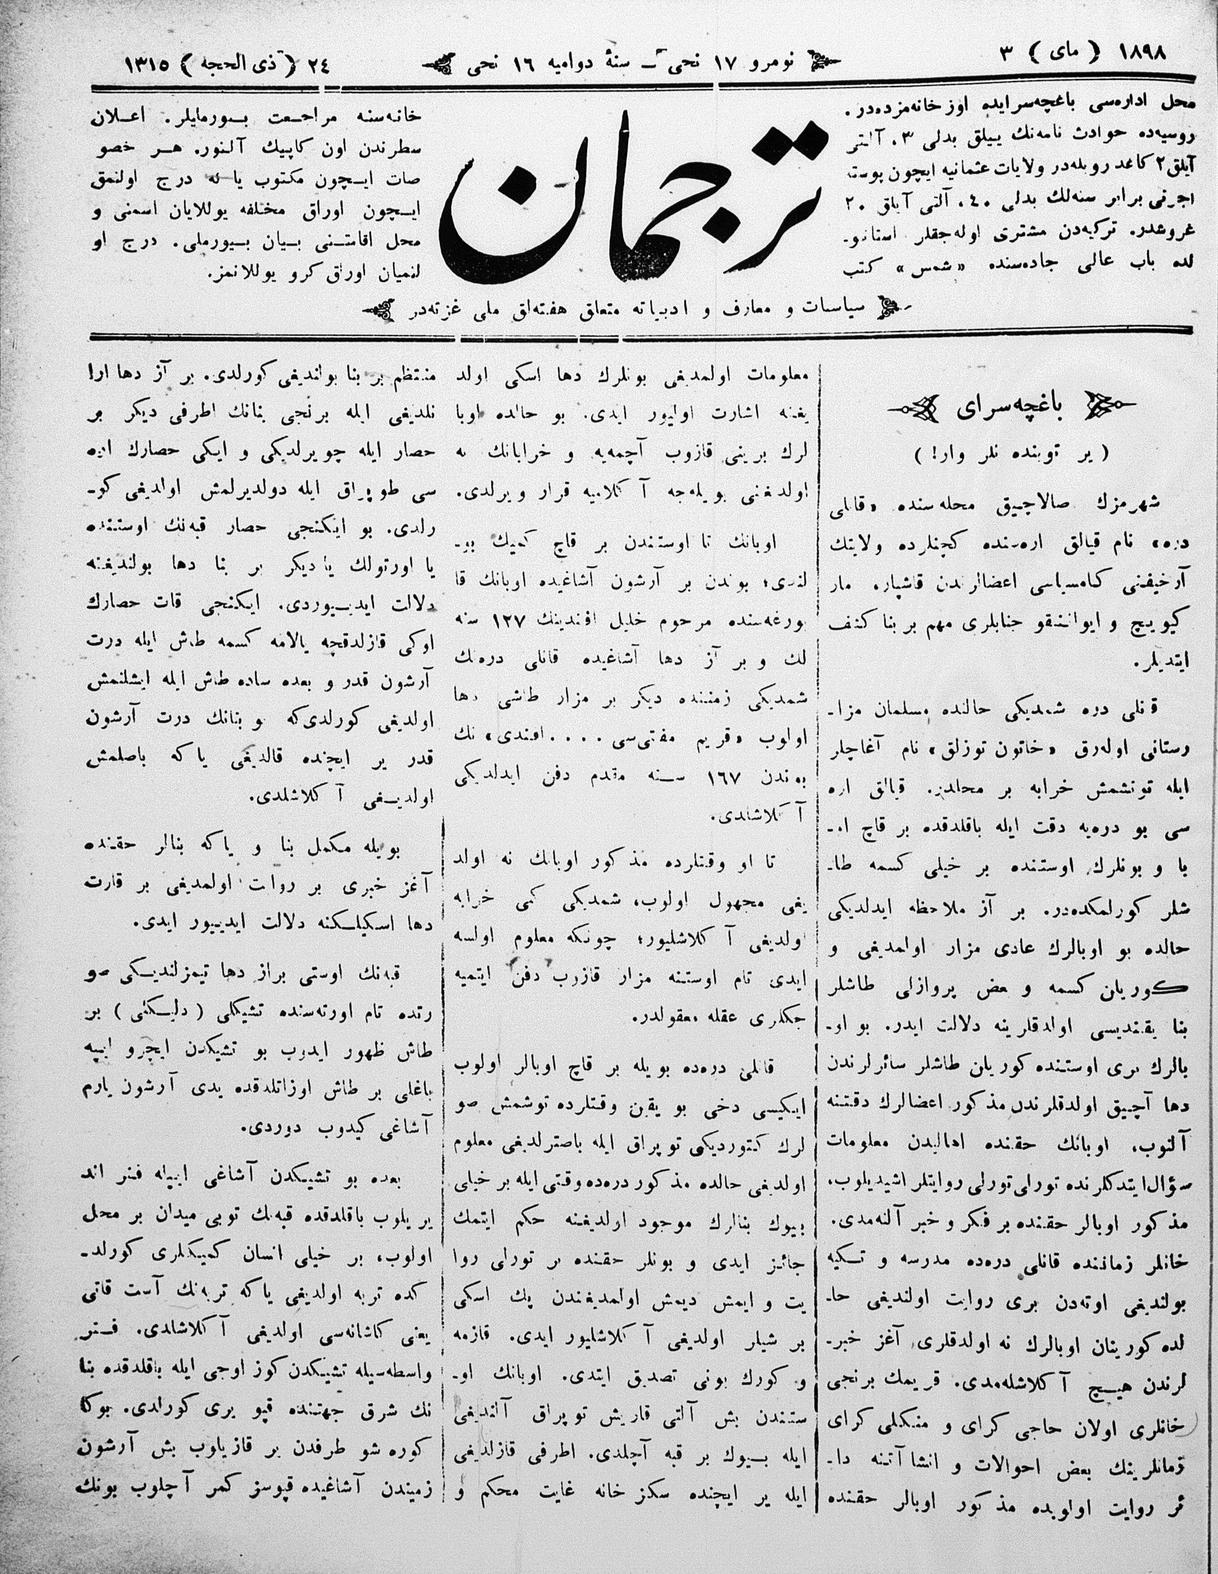 ١٨٩٨ ( مای ) ٣
نومرو ١٧ نحی ـ سنهٔ دوامیه ١٦ نحی
٢٤ ( ذی الحجه ) ١٣١٥
محل اداره‌سی باغچه‌سرایده اوزخانه‌مزده‌در.
روسیه‌ده حوادث نامه‌نك ییللق بدلی ٣، آلتی
آیلق ٢ كاغد روبله‌در ولایات عثمانیه ایچون پوسته
اجرتی برابر سنه‌لك بدلی ٤٠، آلتی آیلق ٢٠
غروشدر. تركیه‌دن مشتری اوله‌جقلر استانبو‌ـ
لده باب عالی جاده‌سنده «شمس» كتب
ترجمان
خانه‌سنه مراجعت بیورمایلر. اعلان
سطرندن اون كاپیك آلنور. هر خصو
صات ایچون مكتوب یازله درج اولنمق
ایچون اوراق مختلفه یوللایان اسمنی و
محل اقامتنی بیان بیورملی. درج او
لنمیان اوراق كرو یوللانمز.
سیاسات و معارف و ادبیاته متعلق هفته‌لق ملی غزته‌در
باغچه‌سرای
( یر توبنده نلر وار! )
شهرمزك صالاجیق محله‌سنده «قانلی
دره» نام قیالق اره‌سنده كچنلرده ولایتك
آرخیفنی كامسیاسی اعضالرندن قاشپار، مار
كویچ و ایواننقو جنابلری مهم بر بنا كشف
ایتدیلر.
قنلی دره شمدیكی حالنده مسلمان مزا‌ـ
رستانی اوله‌رق «خاتون توزلق» نام آغاچلر
ایله تونشمش خرابه بر محلدر. قیالق اره
سی بو دره‌یه دقت ایله باقلدقده بر قاچ او‌ـ
با و بونلرك اوستنده بر خیلی كسمه طا‌ـ
شلر كورلمكده‌در. بر آز ملاحظه ایدلدیكی
حالده بو اوبالرك عادی مزار اولمدیغی و
كوریان كسمه و بعض پروازلی طاشلر
بنا یقندیسی اولدقلرینه دلالت ایدر. بو او‌ـ
بالرك بری اوستنده كوریان طاشلر سائرلرندن
دها آچیق اولدقلرندن مذكور اعضالرك دقتنه
آلنوب، اوبانك حقنده اهالیدن معلومات
سؤال ایتدكلرنده تورلی تورلی روایتلر اشیدیلوب،
مذكور اوبالر حقنده بر فكر و خبر آلنه‌مدی.
خانلر زماننده قانلی دره‌ده مدرسه و تكیه
بولندیغی اوته‌دن بری روایت اولندیغی حا‌ـ
لده كورینان اوبالرك نه اولدقلری، آغز خبر‌ـ
لرندن هیچ آكلاشله‌مدی. قریمك برنجی
خانلری اولان حاجی كرای و منكلی كرای
زمانلرینك بعض احوالات و انشاآتنه دا‌ـ
ئر روایت اولوبده مذكور اوبالر حقنده
معلومات اولمدیغی بونلرك دها اسكی اولد
یغنه اشارت اولیور ایدی. بو حالده اوبا
لرك برینی قازوب آچمه‌یه و خرابانك نه
اولدغنی بویله‌جه آكلامیه قرار ویرلدی.
اوبانك تا اوستندن بر قاچ كمیك بو‌ـ
لندی؛ بوندن بر آرشون آشاغیده اوبانك قا
بورغه‌سنده مرحوم خلیل افندینك ١٢٧ سنه
لك و بر آز دها آشاغیده قانلی دره‌نك
شمدیكی زمیننده دیكر بر مزار طاشی دها
اولوب «قریم مفتی‌سی .... افندی» نك
بوندن ١٦٧ سنه مقدم دفن ایدلدیكی
آكلاشلدی.
تا او وقتلرده مذكور اوبانك نه اولد
یغی مجهول اولوب، شمدیكی كبی خرابه
اولدیغی آكلاشلیور؛ چونكه معلوم اولسه
ایدی تام اوستنه مزار قازوب دفن ایتمیه
جكلری عقله معقولدر.
قانلی دره‌ده بویله بر قاچ اوبالر اولوب
ایكیسی دخی بو یقین وقتلرده توشمش صو
لرك كتوردیكی توپراق ایله باصترلدیغی معلوم
اولدیغی حالده مذكور دره‌ده وقتی ایله بر خیلی
بیوك بنالرك موجود اولدیغنه حكم ایتمك
جائز ایدی و بونلر حقنده بر تورلی روا
یت و ایمش دیمش اولمدیغندن پك اسكی
بر شیلر اولدیغی آكلاشلیور ایدی. قازمه
و كورك بونی تصدیق ایتدی. اوبانك او‌ـ
ستندن بش آلتی قاریش توپراق آلندیغی
ایله بیوك بر قبه آچلدی. اطرفی قازلدیغی
ایله یر ایچنده سكز خانه غایت محكم و
منتظم بر بنا بولندیغی كورلدی. بر آز دها ارا
نلدیغی ایله برنجی بنانك اطرفی دیكر بر
حصار ایله چویرلدیكی و ایكی حصارك اره
سی طوپراق ایله دولدیرلمش اولدیغی كو‌ـ
رلدی. بو ایكنجی حصار قبه‌نك اوستنده
یا اورتولك یا دیكر بر بنا دها بولندیغنه
دلالت ایدیوردی. ایكنجی قات حصارك
اوكی قازلدقچه یالامه كسمه طاش ایله درت
آرشون قدر و بعده ساده طاش ایله ایشلنمش
اولدیغی كورلدی‌كه بو بنانك درت آرشون
قدر یر ایچنده قالدیغی یا‌كه باصلمش
اولدیغی آكلاشلدی.
بویله مكمل بنا و یا‌كه بنالر حقنده
آغز خبری بر روایت اولمدیغی بر قات
دها اسكیلكنه دلالت ایدییور ایدی.
قبه‌نك اوستی براز دها تیمزلندیكی صو
رتده تام اورته‌سنده تشیكلی ( دلیكلی ) بر
طاش ظهور ایدوب بو تشیكدن ایچرو ایپه
باغلی بر طاش اوزاتلدقده یدی آرشون یارم
آشاغی كیدوب دوردی.
بعده بو تشیكدن آشاغی ایپله فنر اند
یریلوب باقلدقده قبه‌نك توبی میدان بر محل
اولوب، بر خیلی انسان كمیكلری كورلد‌ـ
كده تربه اولدیغی یا‌كه تربه‌نك آست قاتی
یعنی كاشانه‌سی اولدیغی آكلاشلدی. فنر
واسطه‌سیله تشیكدن كوز اوجی ایله باقلدقده بنا
نك شرق جهتنده قپو یری كورلدی. بوكا
كوره شو طرفدن بر قازیلوب بش آرشون
زمیندن آشاغیده قپوسز كمر آچلوب بونك